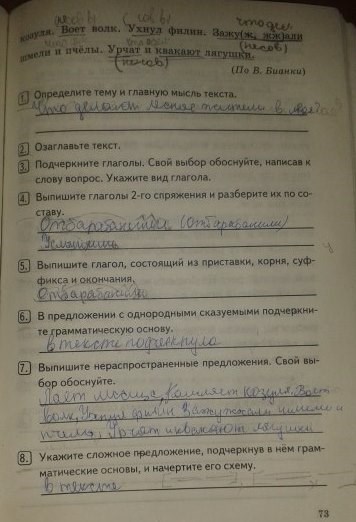 (несов) (сов)
козуля. Воет волк. Ухнул филин. Зажу(ж, жж)али
шмели и пчёлы. Урчат и квакают лягушки.
(несов)
(несов)
(По В. Бианки)
1. Определите тему и главную мысль текста.
Что делают лесные жители в
2. Озаглавьте текст.
3. Подчеркните глаголы. Свой выбор обоснуйте, написав к
слову вопрос. Укажите вид глагола.
4. Выпишите глаголы 2-го спряжения и разберите их по со-
ставу.
Услышишь
5. Выпишите глагол, состоящий из приставки, корня, суф-
фикса и окончания.
6. В предложении с однородными сказуемыми подчеркни-
те грамматическую основу.
в тексте подчеркнуто
7. Выпишите нераспространённые предложения. Свой вы-
бор обоснуйте.
Лает лисица, Кашляет козуля. Воет
волк, Ухнул филин Зажужжали шмели и
пчёлы, Урчат и квакают лягушки
8. Укажите сложное предложение, подчеркнув в нём грам-
матические основы, и начертите его схему.
в тексте
73